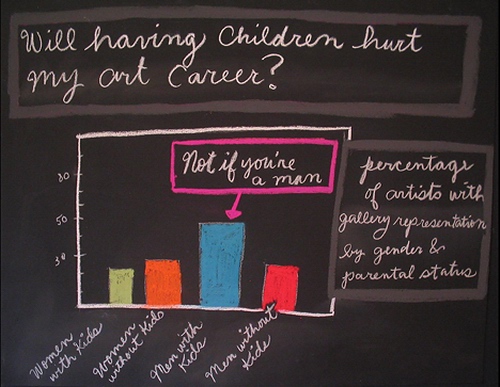 Will having Children hurt
my art Career?
Not if you're
a man
percentage
of artists with
gallery representation
by gender &
parental status
80
50
30
Women
with Kids
Women
without Kids
Men with
Kids
Men without
Kids